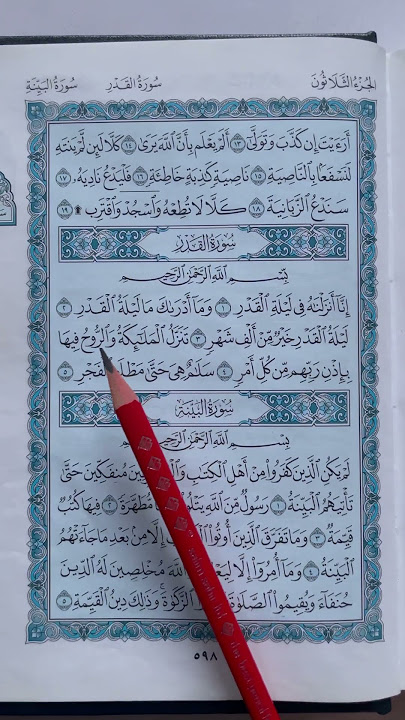 الجزء الثلاثون سورة القدر سورة البينة
أَرَءَيْتَ إِن كَذَّبَ وَتَوَلَّىٰٓ ١٣ أَلَمْ يَعْلَم بِأَنَّ ٱللَّهَ يَرَىٰ ١٤ كَلَّا لَئِن لَّمْ يَنتَهِ
لَنَسْفَعًۢا بِٱلنَّاصِيَةِ ١٥ نَاصِيَةٍ كَٰذِبَةٍ خَاطِئَةٍ ١٦ فَلْيَدْعُ نَادِيَهُۥ ١٧
سَنَدْعُ ٱلزَّبَانِيَةَ ١٨ كَلَّا لَا تُطِعْهُ وَٱسْجُدْ وَٱقْتَرِب ۩ ١٩
سورة القدر
بِسْمِ ٱللَّهِ ٱلرَّحْمَٰنِ ٱلرَّحِيمِ
إِنَّآ أَنزَلْنَٰهُ فِى لَيْلَةِ ٱلْقَدْرِ ١ وَمَآ أَدْرَىٰكَ مَا لَيْلَةُ ٱلْقَدْرِ ٢
لَيْلَةُ ٱلْقَدْرِ خَيْرٌ مِّنْ أَلْفِ شَهْرٍ ٣ تَنَزَّلُ ٱلْمَلَٰٓئِكَةُ وَٱلرُّوحُ فِيهَا
بِإِذْنِ رَبِّهِم مِّن كُلِّ أَمْرٍ ٤ سَلَٰمٌ هِىَ حَتَّىٰ ٥
سورة البينة
بِسْمِ ٱللَّهِ ٱلرَّحْمَٰنِ ٱلرَّحِيمِ
لَمْ يَكُنِ ٱلَّذِينَ كَفَرُوا۟ مِنْ أَهْلِ ٱلْكِتَٰبِ مُنفَكِّينَ حَتَّىٰ
تَأْتِيَهُمُ ٱلْبَيِّنَةُ ١ رَسُولٌ مِّنَ ٱللَّهِ مُّطَهَّرَةً ٢ فِيهَا كُتُبٌ
قَيِّمَةٌ ٣ وَمَا تَفَرَّقَ ٱلَّذِينَ أُوتُوا۟ إِلَّا مِنۢ بَعْدِ مَا جَآءَتْهُمُ
ٱلْبَيِّنَةُ ٤ وَمَآ أُمِرُوٓا۟ إِلَّا ٱللَّهَ مُخْلِصِينَ لَهُ ٱلدِّينَ
حُنَفَآءَ وَيُقِيمُوا۟ ٱلصَّلَوٰةَ ٱلزَّكَوٰةَ وَذَٰلِكَ دِينُ ٱلْقَيِّمَةِ ٥
٥٩٨